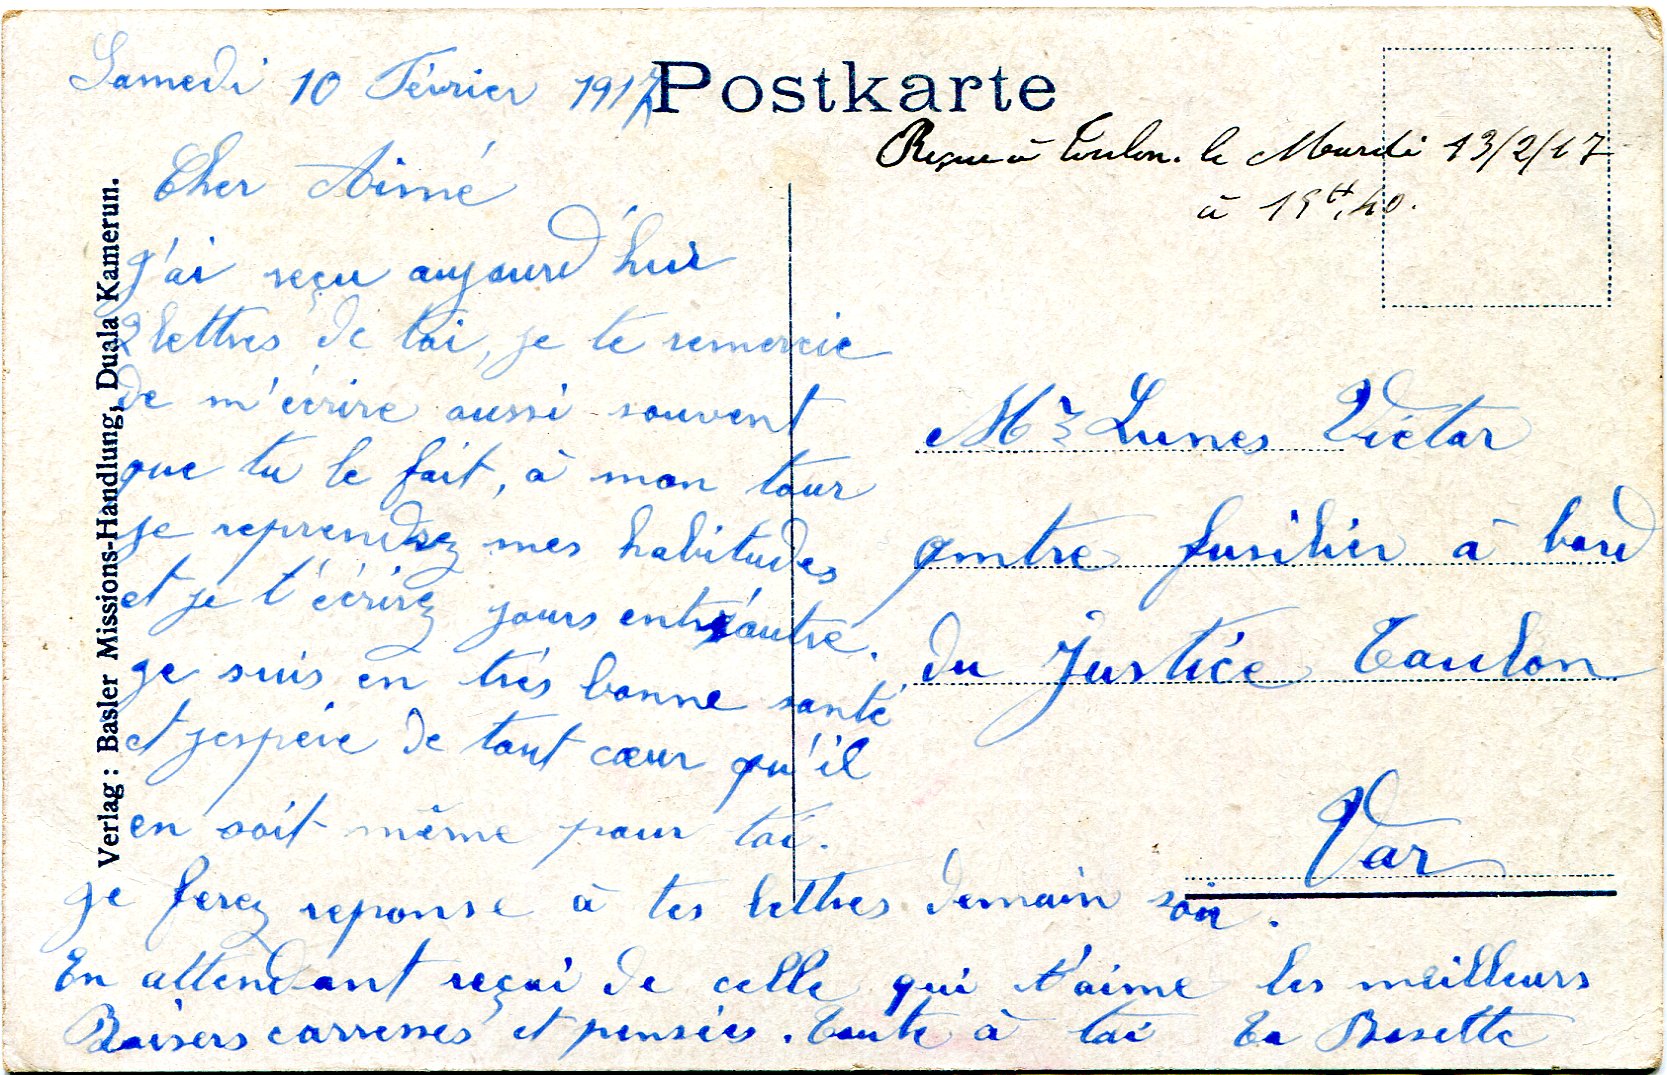 Postkarte
Samedi 10 Février 1917
Reçue à Toulon. le Mardi 13/2/17
à 19H,40.
Cher Aimé
J'ai reçu aujourd'hui
2 lettres de toi, je te remercie
de m'écrire aussi souvent
que tu le fait, à mon tour
je reprendrez mes habitudes
et je t'écrirez jours entr'autre.
je suis en très bonne santé
et j'espère de tout cœur qu'il
en soit même pour toi.
je ferez reponse à tes lettres demain soir.
En attendant reçoi de celle qui t'aime les meilleurs
Baisers carresses et pensées. Toute à toi Ta Rosette
Mr Lunes Victor
fusilier à bord
du Justice Toulon
Var
Verlag: Basler Missions-Handlung, Duala Kamerun.